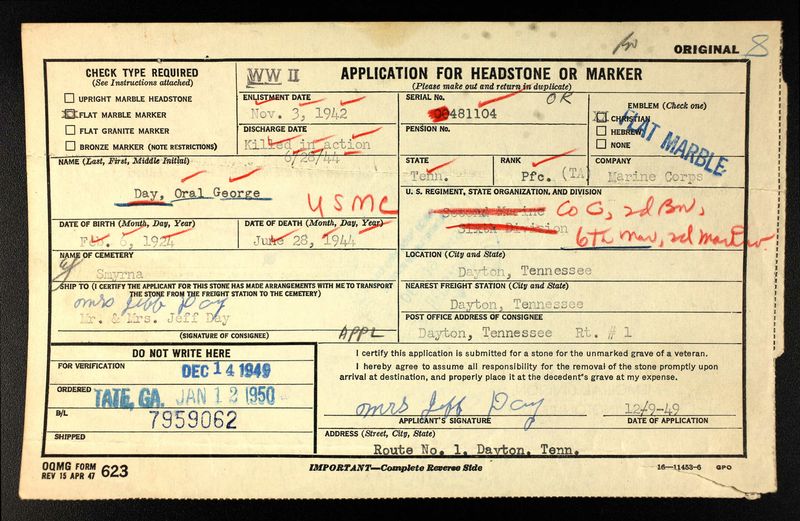 ORIGINAL 8
CHECK TYPE REQUIRED
(See Instructions attached)
UPRIGHT MARBLE HEADSTONE
FLAT MARBLE MARKER
FLAT GRANITE MARKER
BRONZE MARKER (NOTE RESTRICTIONS)
WW II
APPLICATION FOR HEADSTONE OR MARKER
(Please make out and return in duplicate)
ENLISTMENT DATE
Nov. 3, 1942
DISCHARGE DATE
Killed in action
6/28/44
SERIAL No.
OR
481104
PENSION No.
EMBLEM (Check one)
CHRISTIAN
HEBREW
NONE
FLAT MARBLE
NAME (Last, First, Middle Initial)
Day, Oral George
USMC
STATE
Tenn.
RANK
Pfc. (TA)
COMPANY
Marine Corps
U. S. REGIMENT, STATE ORGANIZATION, AND DIVISION
Second Marine
Sixth Division
Co G, 2d Bn,
6th Mar, 2d Mar Div
DATE OF BIRTH (Month, Day, Year)
Feb. 6, 1924
DATE OF DEATH (Month, Day, Year)
June 28, 1944
NAME OF CEMETERY
Smyrna
LOCATION (City and State)
Dayton, Tennessee
SHIP TO (I CERTIFY THE APPLICANT FOR THIS STONE HAS MADE ARRANGEMENTS WITH ME TO TRANSPORT
THE STONE FROM THE FREIGHT STATION TO THE CEMETERY)
Mrs Jeff Day
Mr. & Mrs. Jeff Day
(SIGNATURE OF CONSIGNEE)
APPL
NEAREST FREIGHT STATION (City and State)
Dayton, Tennessee
POST OFFICE ADDRESS OF CONSIGNEE
Dayton, Tennessee Rt. # 1
DO NOT WRITE HERE
FOR VERIFICATION
DEC 14 1949
ORDERED
TATE, GA. JAN 12 1950
B/L
7959062
SHIPPED
I certify this application is submitted for a stone for the unmarked grave of a veteran.
I hereby agree to assume all responsibility for the removal of the stone promptly upon
arrival at destination, and properly place it at the decedent's grave at my expense.
Mrs Jeff Day
12/9-49
APPLICANT'S SIGNATURE
DATE OF APPLICATION
ADDRESS (Street, City, State)
Route No. 1, Dayton, Tenn.
OQMG FORM
REV 15 APR 47 623
IMPORTANT—Complete Reverse Side
16—11453-6 GPO